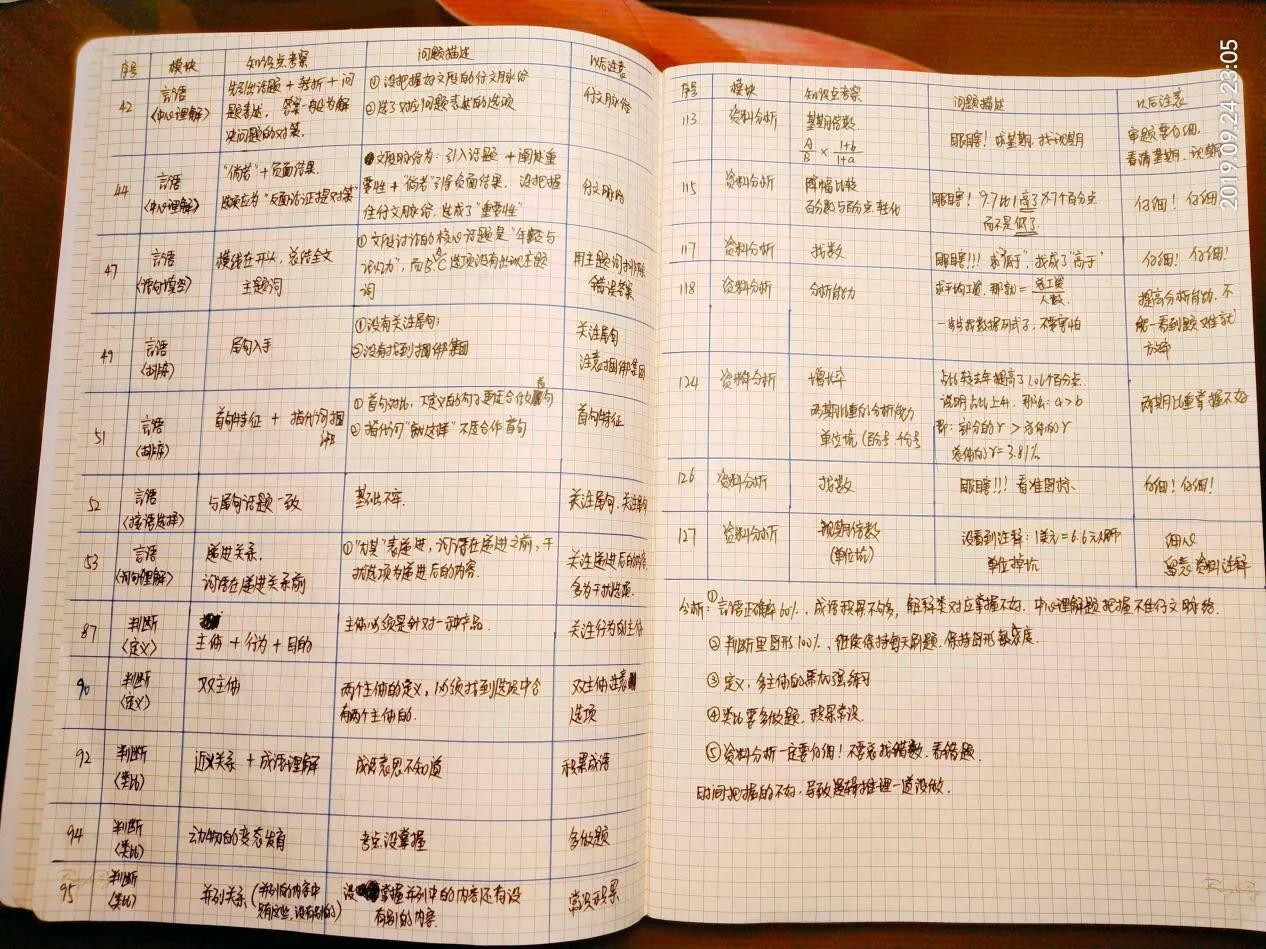 序号 模块 知识点考察 问题描述 以后注意
42 言语 (中心理解) 先引出话题+转折+问
题表述,答案一般为解
决问题的对策。
①没把握好文段的行文脉络
②选了对应问题表述的选项
行文脉络
44 言语 (中心理解) "倘若"+负面结果.
选项应为"反面论证提对策"
文段脉络为:引入话题+阐述重
要性+"倘若"引得负面结果.没把握
住行文脉络.选成了"重要性"
行文脉络
47 言语 (语句填空) 横线在开头,总结全文
主题词
①文段讨论的核心话题是"年龄与
",而B、C选项没有出现主题
词
用主题词排除
错误答案
49 言语 (排序) 尾句入手
①没有关注尾句;
②没有找到捆绑集团
关注尾句
注意捆绑集团
51 言语 (排序) 首句特征+指代词捆
绑
①首句对比,下定义的句子更适合做首句
②指代词"这样"不适合作首句
首句特征
52 言语 (接语选择) 与尾句话题一致
基础不牢.
关注尾句.关注尾句
53 言语 (词句理解) 递进关系.
词语在递进关系前
①"尤其"表递进,词语在递进之前,干
扰选项为递进后的内容.
关注递进后的内容,
多为干扰选项.
87 判断 (定义) 主体+行为+目的
主体必须是针对一种产品.
关注行为的主体
90 判断 (定义) 双主体
两个主体的定义,必须找到选项中含
有两个主体的.
双主体注意
选项
92 判断 (类比) 近义关系+成语理解
成语意思不知道
积累成语
94 判断 (类比) 动物的变态发育
考点没掌握
多做题
95 判断 (类比) 并列关系(并列的内容中
只有这些,没有别的)
没掌握并列中的内容还有没
有别的内容.
常识积累
序号 模块 知识点考察 问题描述 以后注意
113 资料分析 基期倍数.
A/B × 1+b/1+a
眼瞎!求基期,找现期
审题要仔细.
看清基期、现期
115 资料分析 降幅比较
百分数与百分点转化
眼瞎!9.7比1高了8.7个百分点
而不是低了.
仔细!仔细
117 资料分析 找数
眼瞎!!!求"低于",找成了"高于"
仔细!仔细!
118 资料分析 分析能力
求平均工资,那就=总工资/人数.
一步步找数据列式子,不要害怕
提高分析能力,不
能一看到题难就
放弃
124 资料分析 增长率
两期比重的分析能力
单位坑(百分号,千分号
占比较去年提高了1.06个百分点.
说明占比上升,那么:a>b
即:部分的r>总体的r
总体的r=3.81%.
两期比重掌握不好
126 资料分析 找数
眼瞎!!!看准图标.
仔细!仔细!
127 资料分析 现期倍数
(单位坑)
没看到注释:1美元=6.6元人民币
单位掉坑
细心
留意资料注释
分析:①言语正确率60%,成语积累不够多,解释类对应掌握不好.中心理解题把握不住行文脉络.
②判断里图形100%,继续保持每天刷题.保持图形敏感度.
③定义,多主体的要加强练习
④类比要多做题,积累常识.
⑤资料分析一定要仔细!不要总找错数,看错题.
时间把握的不好.导致逻辑推理一道没做.
2019.09.24 23:05